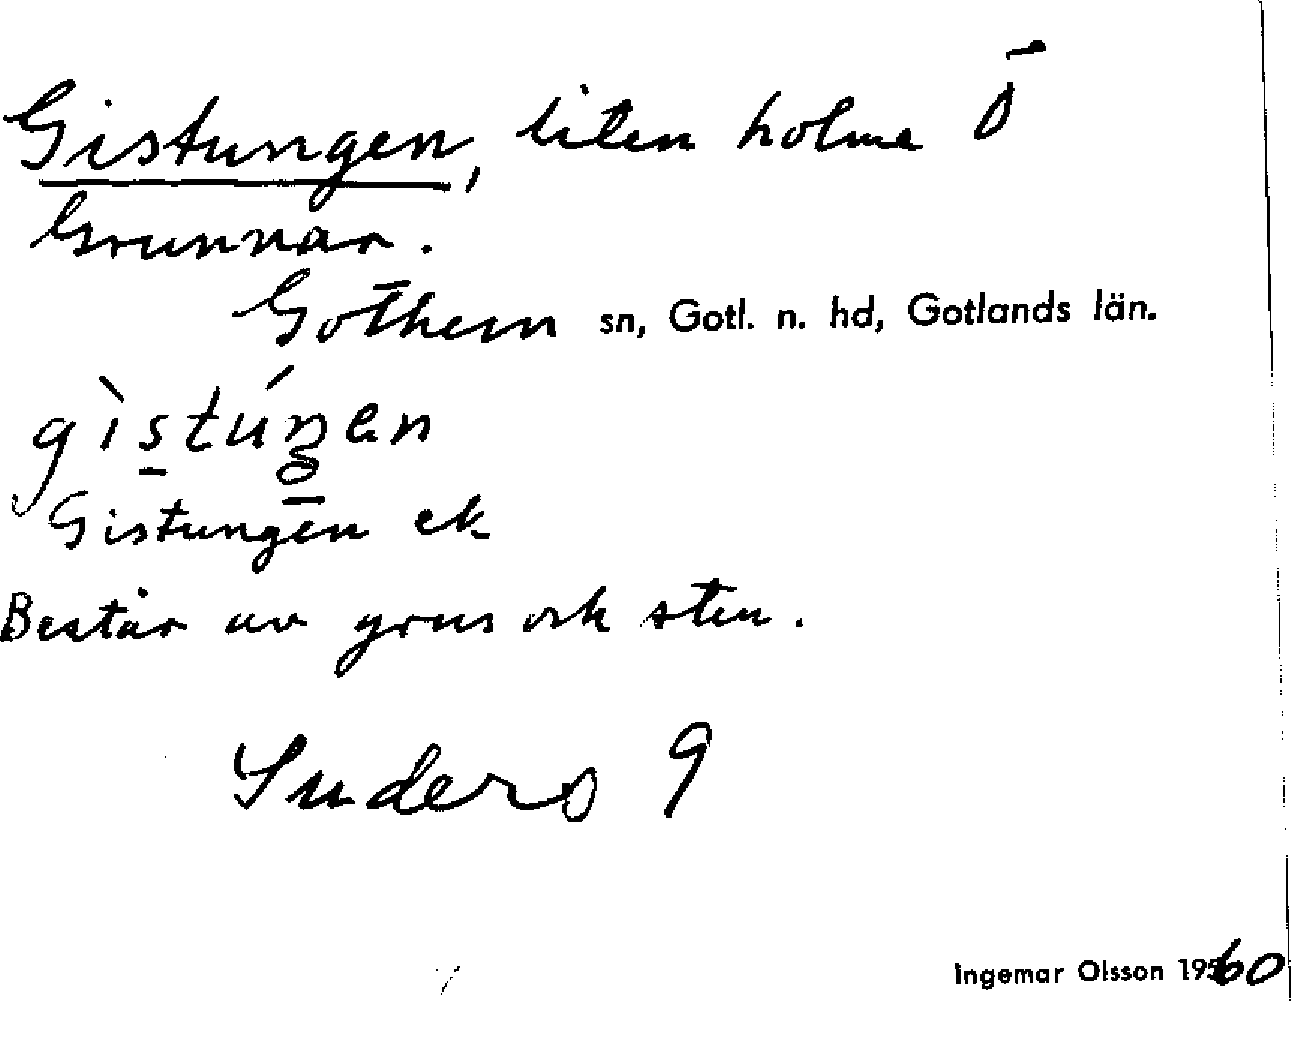 Gistungen, liten holme Ö
Grunnar.
Gothem sn, Gotl. n. hd, Gotlands län.
gìstúŋen
Gistungen ek
Består av grus ock sten.
Suders 9
Ingemar Olsson 1960